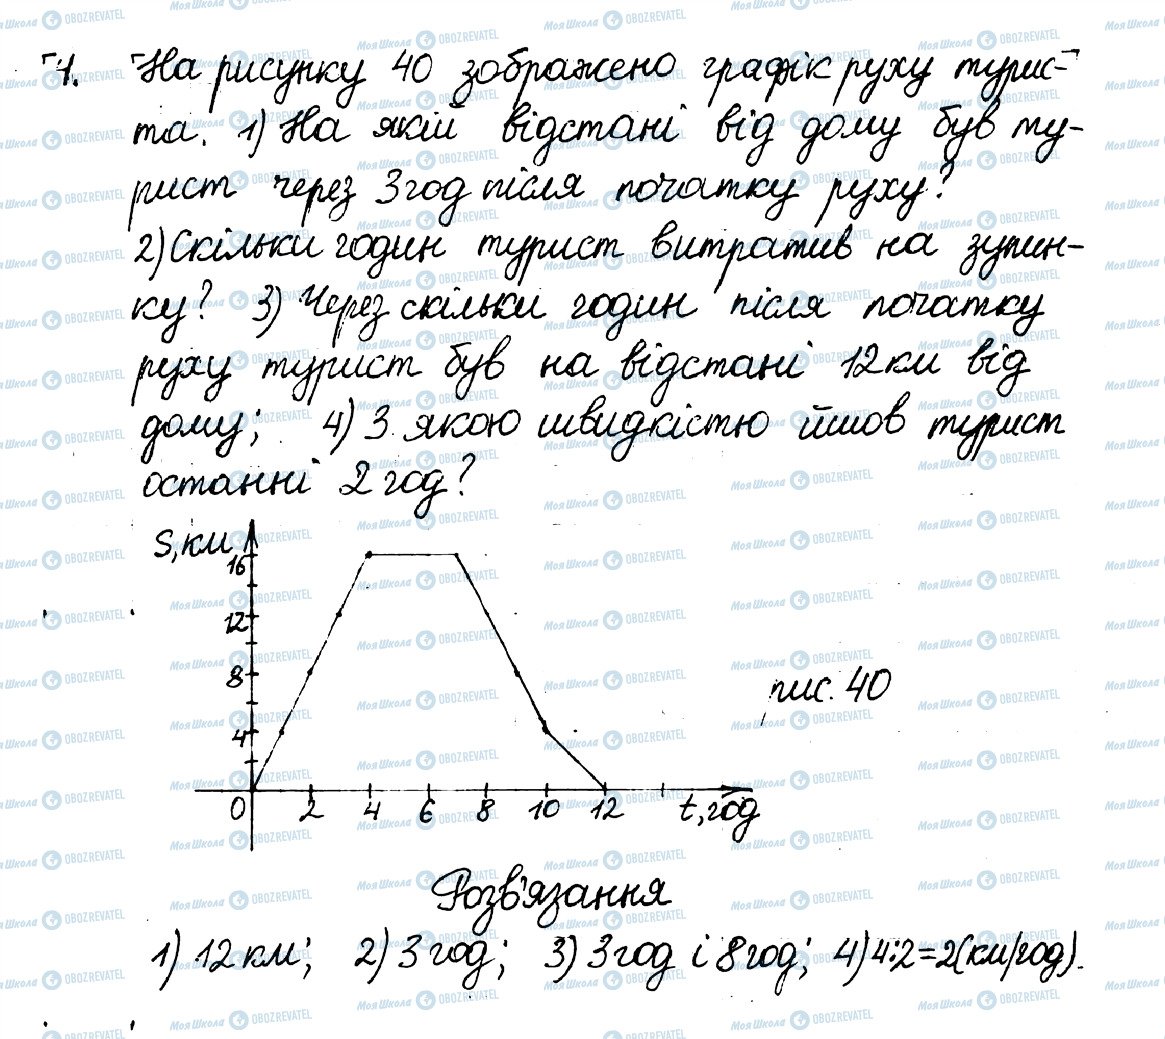 1. На рисунку 40 зображено графік руху турис-
та. 1) На якій відстані від дому був ту-
рист через 3 год після початку руху?
2) Скільки годин турист витратив на зупин-
ку? 3) Через скільки годин після початку
руху турист був на відстані 12 км від
дому; 4) З якою швидкістю йшов турист
останні 2 год?
S, км
16
12
8
4
0 2 4 6 8 10 12 t, год
рис. 40
Розв'язання
1) 12 км; 2) 3 год; 3) 3 год і 8 год; 4) 4:2=2(км/год).
МояШкола OBOZREVATEL